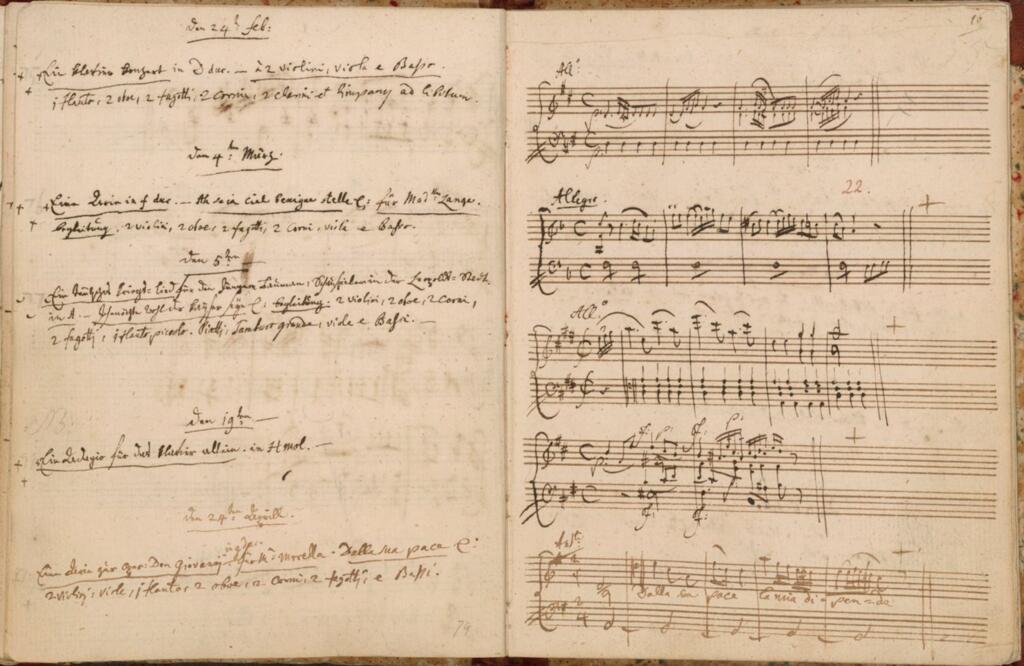 den 24:t feb:
Ein klavier konzert in D dur. — à 2 violini, viola e Basso.
1 flauto, 2 oboe, 2 fagotti, 2 Corni, 2 clarini et timpany ad libitum.
den 4:ten März:
Eine Aria in f dur. — Ah se in ciel benigne stelle für Mad:me Lange.
begleitung. 2 violini, 2 oboe, 2 fagotti, 2 Corni, viola e Basso.
den 5:ten
Ein teutsches kriegs-lied für den Jungen Bauman, Schauspieler in der Leopold-Stadt
in A. — begleitung. 2 violini, 2 oboe, 2 Corni,
2 fagotti, 1 flauto piccolo. Piatti, Tamburo grande, viole e Bassi.
den 19:ten —
Ein Adagio für das klavier allein. in H mol. —
den 24:ten Aprill.
Eine Aria zur oper: Don Giovanni für M:r Morella. Dalla sua pace
2 violini, viole, 1 flauto, 2 oboe, 2 Corni, 2 fagotti, e Bassi.
79
All:o
22.
Allegro.
All:o
And:te
Dalla sua pace la mia di-pen-de